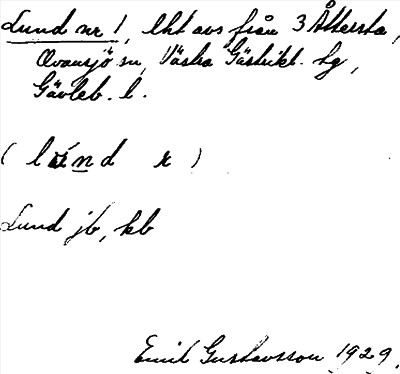 Lund nr 1, lht avs från 3 Åttersta,
Ovansjö sn, Västra Gästrikl. tg,
Gävleb. l.
( l n d r )
Lund jb, kb
Emil Gustavsson 1929.